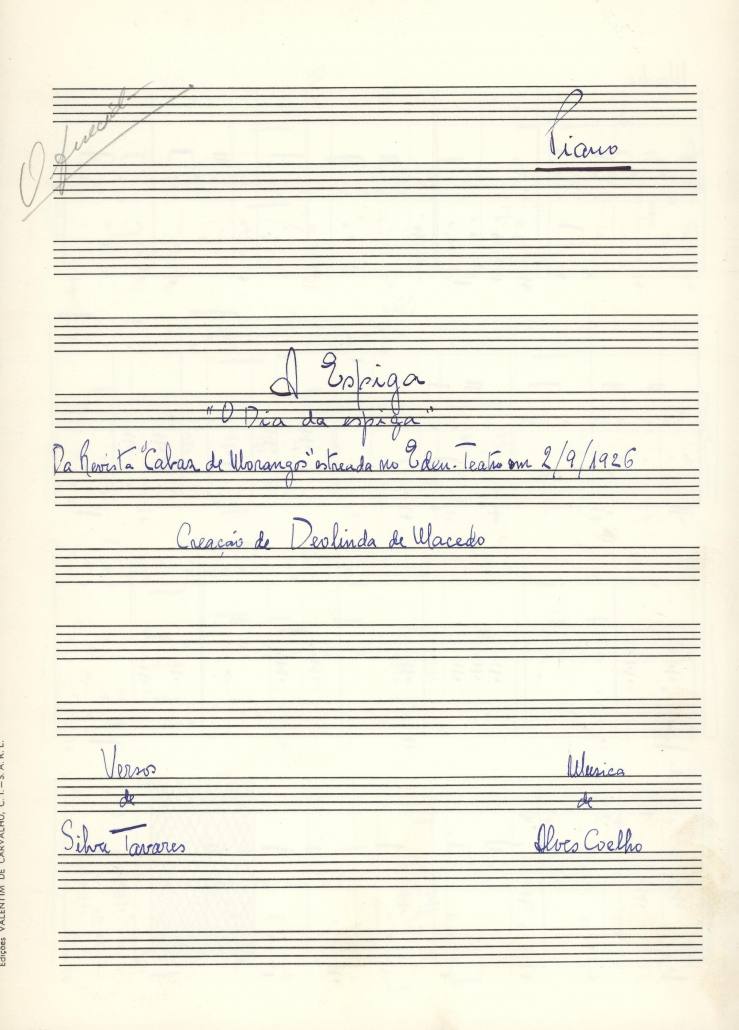 Piano
A Espiga
"O Dia da espiga"
Da Revista "Cabaz de Morangos" estreada no Eden-Teatro em 2/9/1926
Creação de Deolinda de Macedo
Versos
de
Silva Tavares
Musica
de
Alves Coelho
Edições VALENTIM DE CARVALHO, C. I. – S. A. R. L.